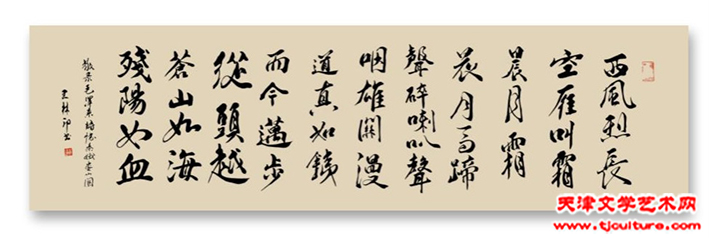 西風烈長
空雁叫霜
晨月霜
晨月馬蹄
聲碎喇叭聲
咽雄關漫
道真如鐵
而今邁步
從頭越
蒼山如海
殘陽如血
敬录毛澤東詞憶秦娥婁山關
天津文学艺术网
www.tjculture.com